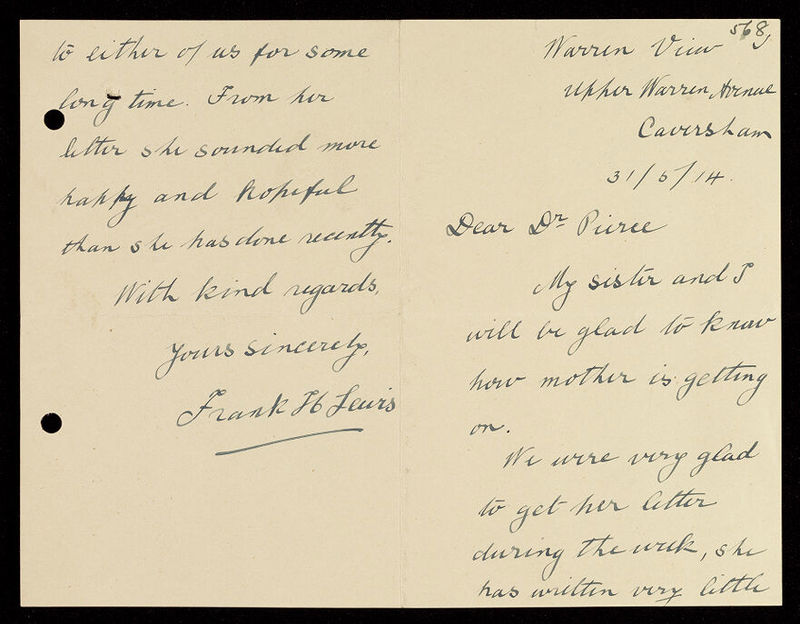 568
Warren View
Upper Warren Avenue
Caversham
31/5/14.
Dear Dr Pierce
My sister and I
will be glad to know
how mother is getting
on.
We were very glad
to get her letter
during the week, she
has written very little
to either of us for some
long time. From her
letter she sounded more
happy and hopeful
than she has done recently.
With kind regards,
Yours sincerely,
Frank H Lewis